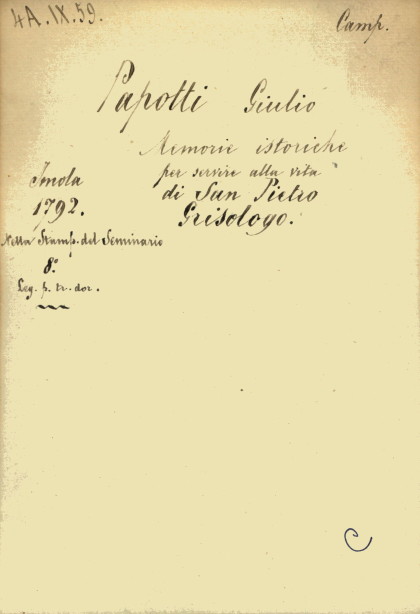 4A.IX.59.
Camp.
Papotti Giulio
Memorie istoriche
per servire alla vita
di San Pietro
Grisologo.
Imola
1792.
Nella Stamp. del Seminario
8º
Leg. p. tr. dor.
C